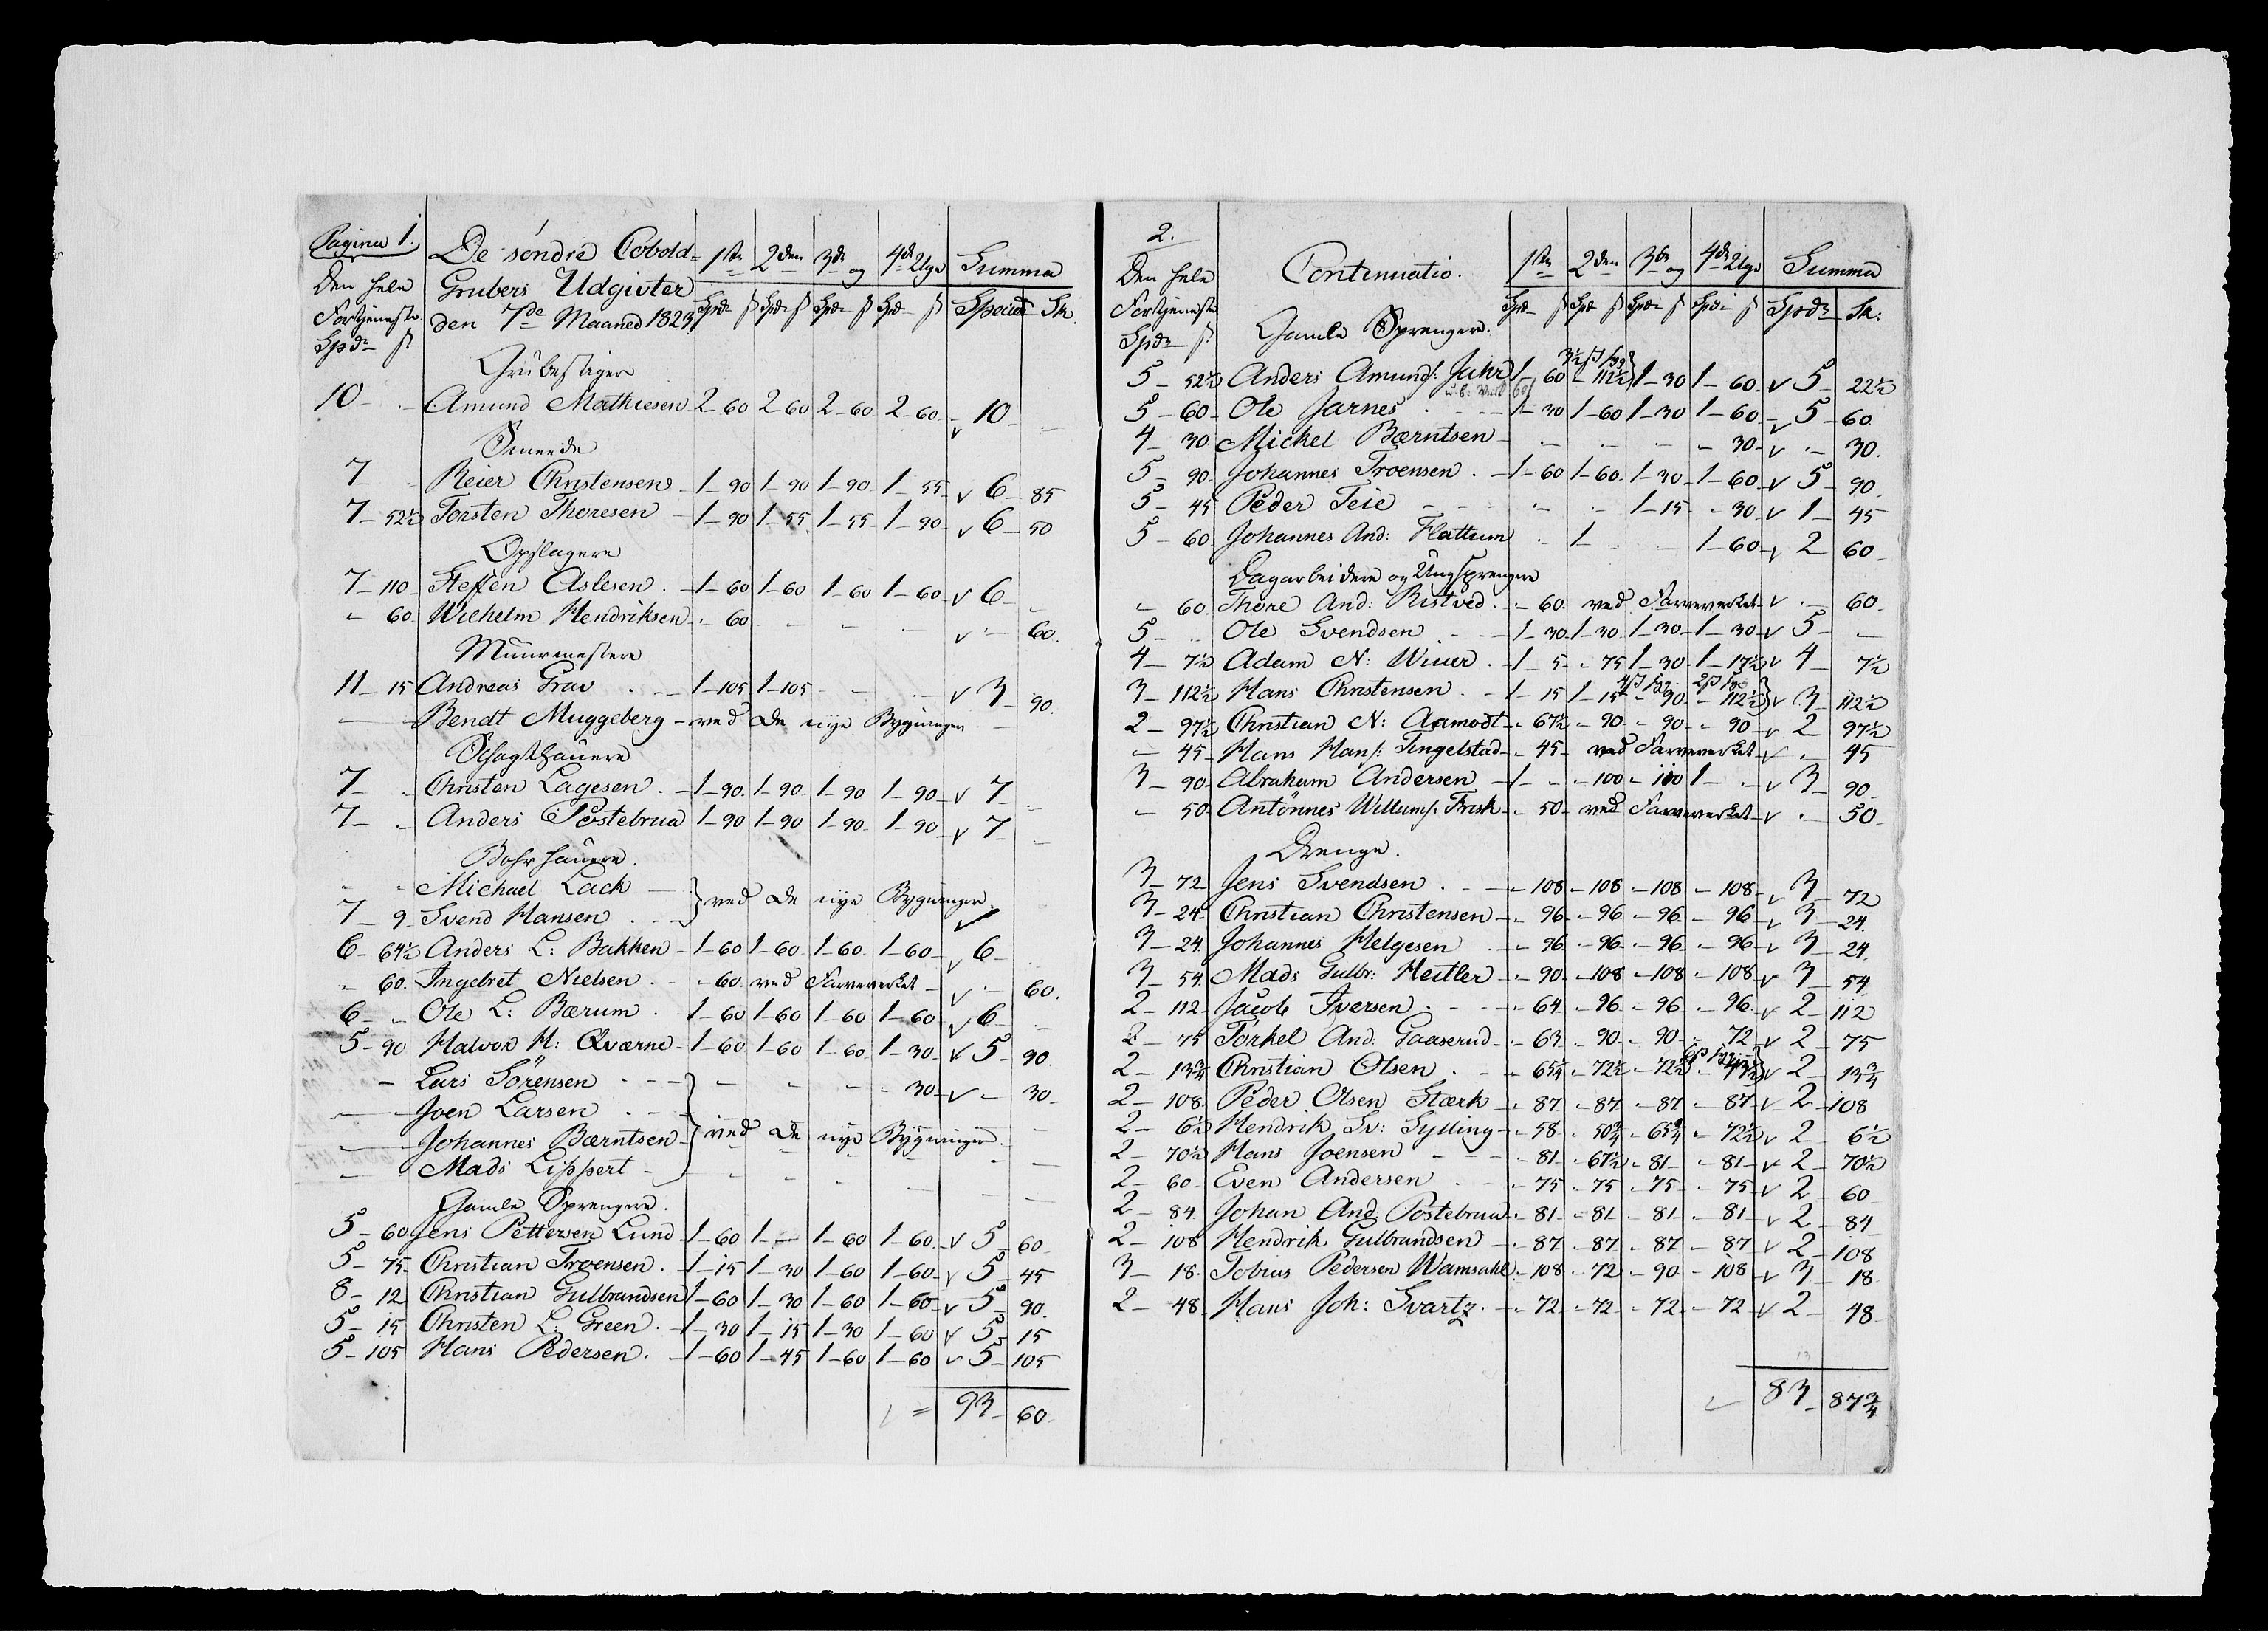 Pagina 1.
De söndre Cobold-
Grubers Udgivter
den 7de Maaned 1823
Den hele Fortjeneste
Spdr ß
1ste 2den 3de og 4de Uge Summa
Spdr ß Spdr ß Spdr ß Spdr ß Speciedr Sk.
Grubestiger
10 - - Amund Mathiesen 2-60 2-60 2-60 2-60 10 -
Smeede
7 - Reier Christensen 1-90 1-90 1-90 1-55 6 85
7-52½ Torsten Thoresen 1-90 1-55 1-55 1-90 6 50
Opslagere
7-110 Steffen Aslesen 1-60 1-60 1-60 1-60 6 -
- 60 Wilhelm Hendriksen - 60 - - - - 60.
Muurmestere
11-15 Andreas Grav 1-105 1-105 - - 3 90.
Bendt Muggeberg - ved de nÿe Bygninger
7 - Christen Lagesen 1-90 1-90 1-90 1-90 7 -
7 - Anders Postebrua 1-90 1-90 1-90 1-90 7 -
Bohrhauere.
- - Michael Lack } ved de nye Bygninger.
7-9 Svend Hansen
6-64½ Anders L: Bakken 1-60 1-60 1-60 1-60 6 -
- 60. Ingebret Nielsen - 60. ved Farveverket - 60.
6 - Ole L: Bærum 1-60 1-60 1-60 1-60 6 -
5-90 Halvor H: Qværne 1-60 1-60 1-60 1-30 5 90.
- Lars Sörensen - - - 30 - 30
- Joen Larsen
- Johannes Bærntsen } ved de nye Bygninger.
- Mads Lippert
Gamle Sprengere.
5-60 Jens Pettersen Lund 1-60 1- - 1-60 1-60 5 60
5-75 Christian Troensen 1-15 1-30 1-60 1-60 5 45
8-12 Christian Gulbrandsen 1-60 1-30 1-60 1-60 5 90.
5-15 Christen L: Green 1-30 1-15 1-30 1-60 5 15
5-105 Hans Pedersen 1-60 1-45 1-60 1-60 5 105
= 93 60
2.
Continuatio.
Den hele Fortjeneste
Spdr ß
1ste 2den 3de og 4de Uge Summa
Spdr ß Spdr ß Spdr ß Spdr ß Spdr Sk:
Gamle Sprengere.
5-52½ Anders Amunds: Juhr 1-60 - 112½ 1-30 1-60 5 22½
5-60 Ole Jarnes 1-30 1-60 1-30 1-60 5 60
4-30 Mickel Bærntsen - - - - 30 - 30.
5-90 Johannes Troensen 1-60 1-60 1-30 1-60 5 90
5-45 Peder Teie - - 1-15 - 30 1 45
5-60 Johannes And: Flattum - 1 - - 1-60 2 60
Dagarbeidere og Ungsprengere
- 60 Thore And: Ristved - 60. ved Farveverket - 60.
5 - Ole Svendsen 1-30 1-30 1-30 1-30 5 -
4-7½ Adam N: Wiuer 1-5 - 75 1-30 1-17½ 4 7½
3-112½ Hans Christensen 1-15 1-15 - 90 - 112½ 3 112½
2-97½ Christian N: Aamodt - 67½ - 90 - 90 - 90 2 97½
- 45 Hans Hans: Tingelstad - 45 ved Farveverket - 45
3-90 Abraham Andersen 1 - - 100 - 110 1 - 3 90
- 50 Antönnes Willums: Frisk - 50 ved Farveverket - 50
Drenge.
3-72 Jens Svendsen - 108 - 108 - 108 - 108 3 72
3-24 Christian Christensen - 96 - 96 - 96 - 96 3 24.
3-24 Johannes Helgesen - 96 - 96 - 96 - 96 3 24
3-54 Mads Gulbr: Heitler - 90 - 108 - 108 - 108 3 54
2-112 Jacob Iversen - 64 - 96 - 96 - 96 2 112
2-75 Torkel And. Gaaserud - 63 - 90 - 90 - 72 2 75
2-13¾ Christian Olsen - 65¼ - 72½ - 72½ - 43½ 2 13¾
2-108 Peder Olsen Stærk - 87 - 87 - 87 - 87 2 108
2-6½ Hendrik Sv: Sylling - 58 - 50¾ - 65¼ - 72½ 2 6½
2-70½ Hans Joensen - 81 - 67½ - 81 - 81 2 70½
2-60 Even Andersen - 75 - 75 - 75 - 75 2 60
2-84 Johan And. Postebrua - 81 - 81 - 81 - 81 2 84
2-108 Hendrik Gulbrandsen - 87 - 87 - 87 - 87 2 108
3-18 Tobias Pedersen Wamsahl - 108 - 72 - 90 - 108 3 18
2-48 Hans Joh: Svartz - 72 - 72 - 72 - 72 2 48
83 87¾